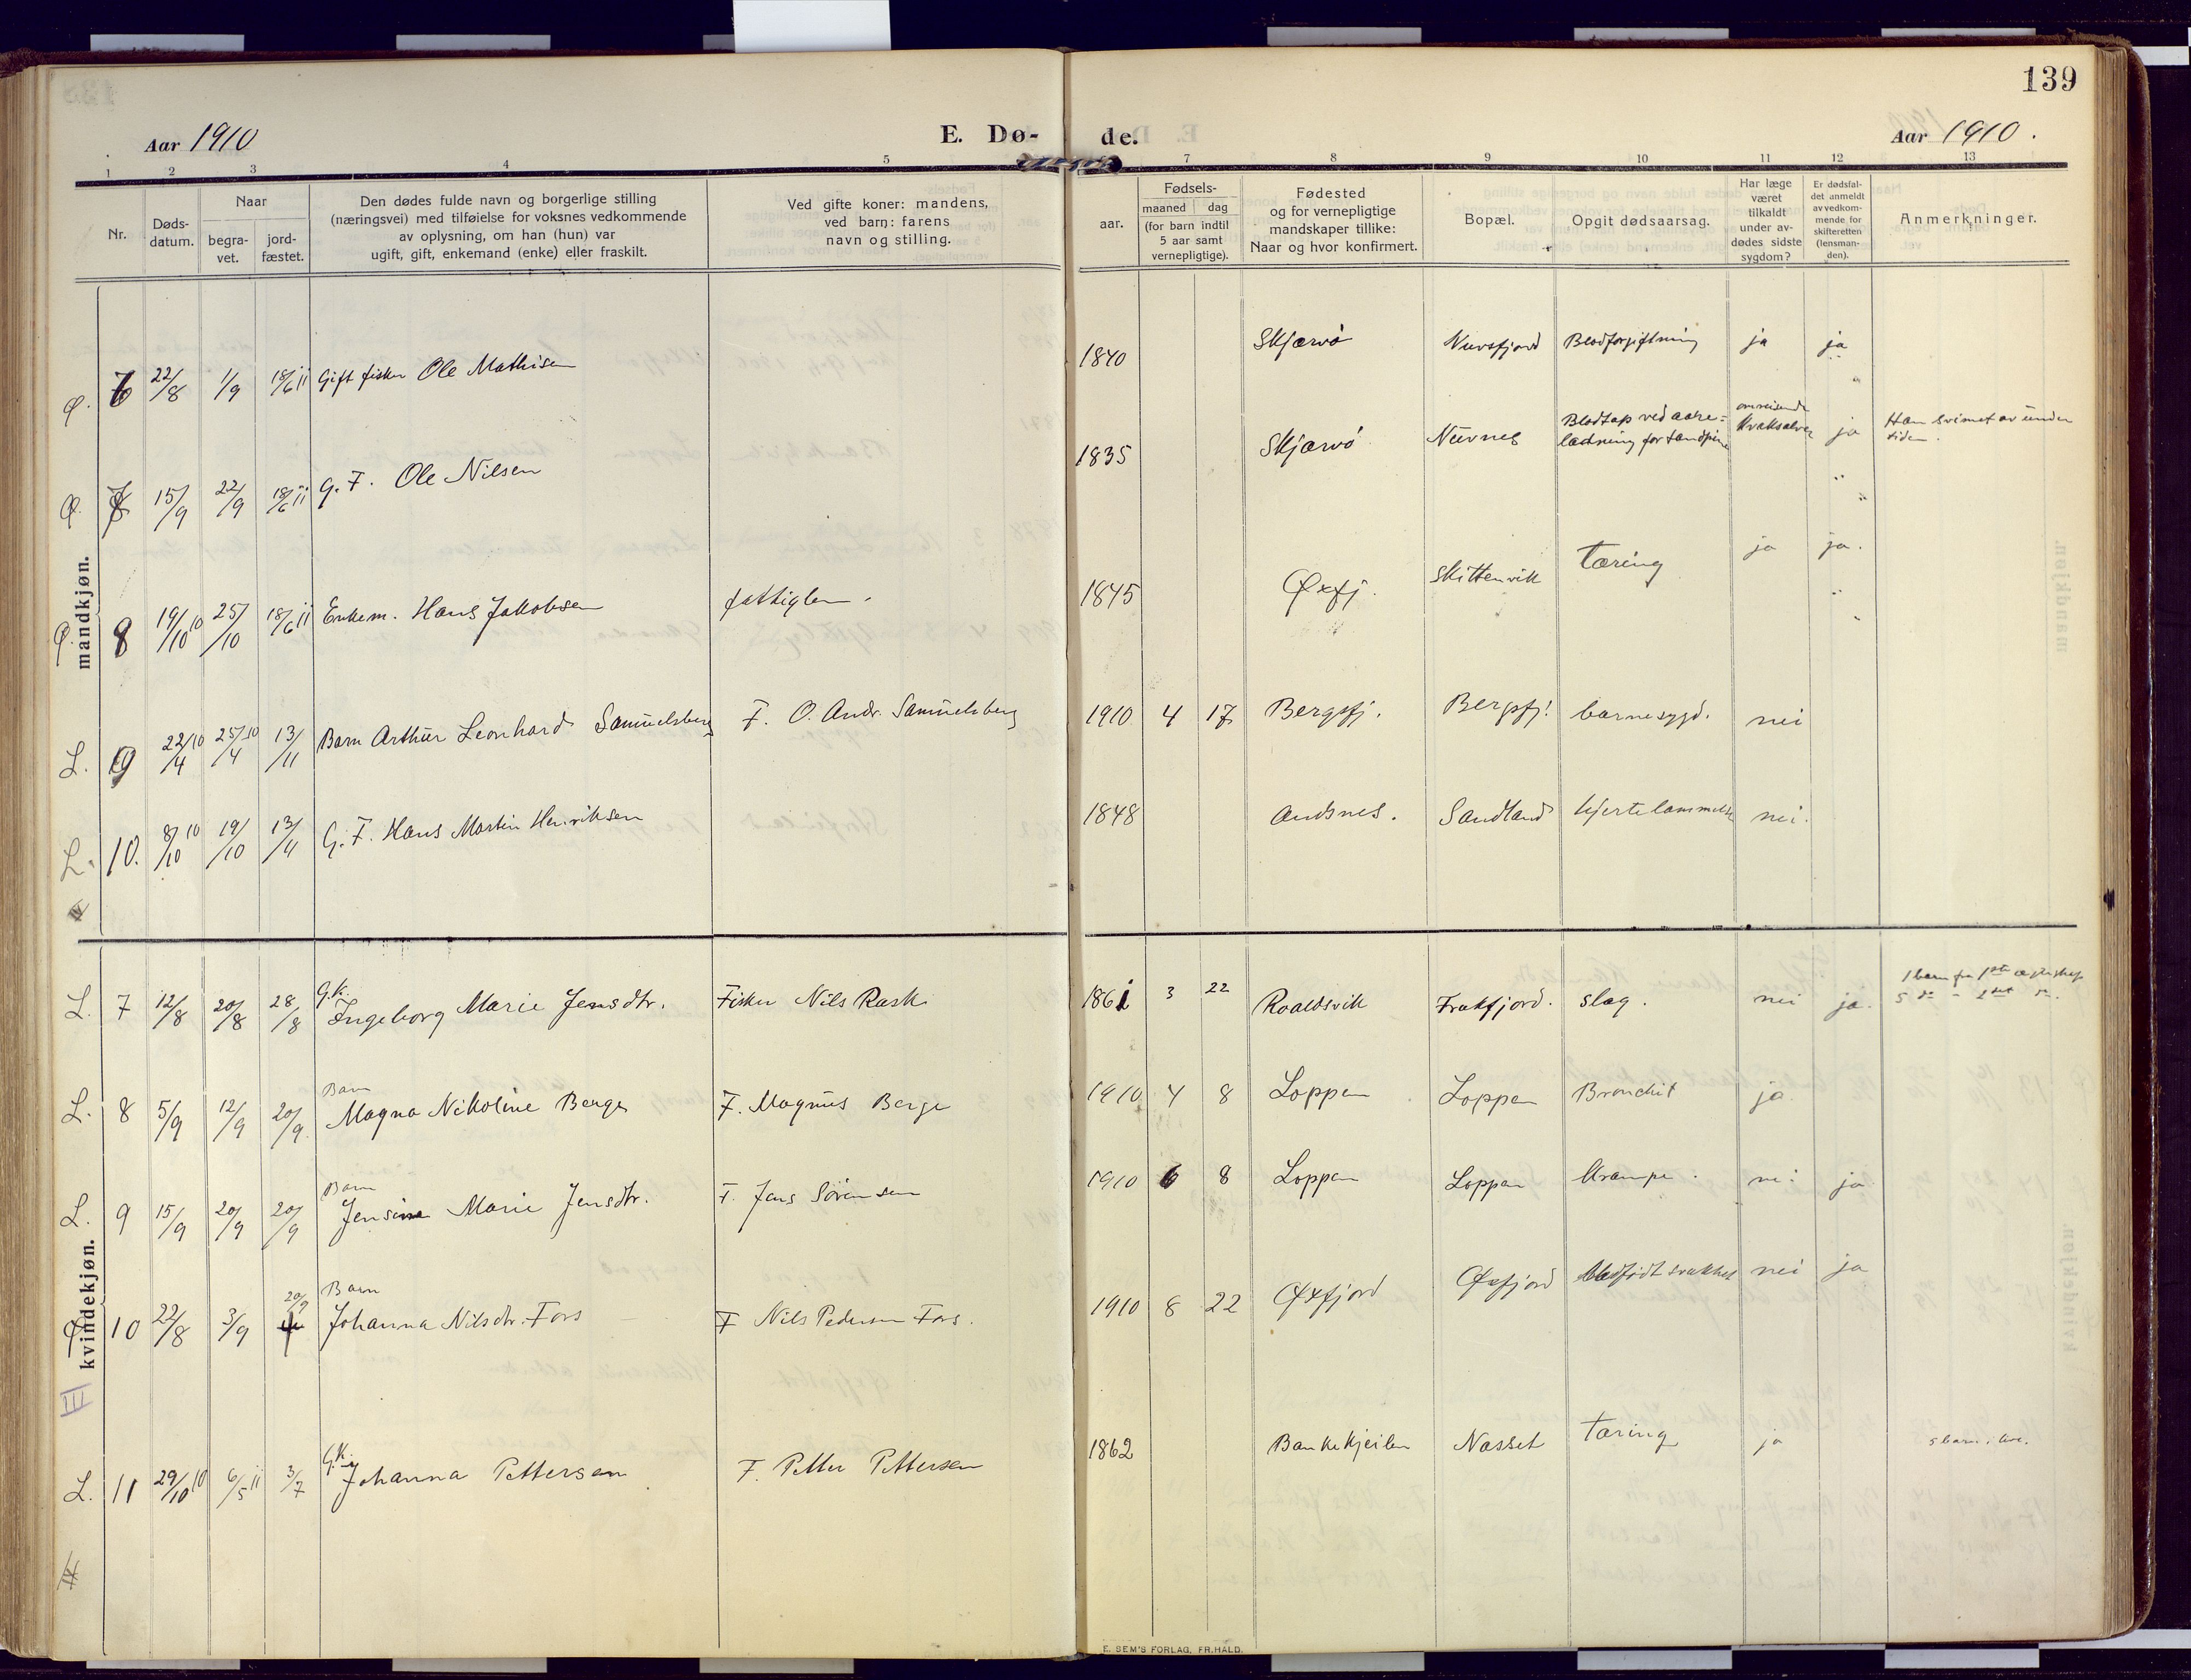 139
Aar 1910
E. Dø-
de.
Aar 1910.
1 2 3 4 5
7 8 9 10 11 12 13
Nr.
Døds-
datum.
Naar
begra-
vet.
jord-
fæstet.
Den dødes fulde navn og borgerlige stilling
(næringsvei) med tilføielse for voksnes vedkommende
av oplysning, om han (hun) var
ugift, gift, enkemand (enke) eller fraskilt.
Ved gifte koner: mandens,
ved barn: farens
navn og stilling.
aar.
Fødsels-
maaned dag
(for barn indtil
5 aar samt
vernepligtige).
Fødested
og for vernepligtige
mandskaper tillike:
Naar og hvor konfirmert.
Bopæl.
Opgit dødsaarsag.
Har læge
været
tilkaldt
under av-
dødes sidste
sygdom?
Er dødsfal-
det anmeldt
av vedkom-
mende for
skifteretten
(lensman-
den).
Anmerkninger.
mandkjøn.
Ø. 6 22/8 1/9 18/6 11 Gift fisker Ole Mathisen 1840 Skjærvø Nuvsfjord Blodforgiftning ja ja
Ø. 7 15/9 22/9 18/6 11 G. F. Ole Nilsen 1835 Skjærvø Nuvnes Blodtap ved aare-
ladning for tandpine omreisende
kvaksalver ja Han svimet av under
tiden.
Ø. 8 19/10 10 25/10 18/6 11 Enkem. Hans Jakobsen fattiglem. 1845 Øxfj. Skittenvik Tæring ja ja.
L. 9 22/4 10 25/4 10 13/11 Barn Arthur Leonhard Samuelsberg F. O. Andr. Samuelsberg 1910 4 17 Bergsfj. Bergsfj. barnesygd. nei
L. 10. 8/10 10 19/10 13/11 G. F. Hans Martin Henriksen 1848 Andsnes. Sandland hjertelammelse nei.
kvindekjøn.
L. 7 12/8 20/8 28/8 G.K.
Ingeborg Marie Jensdtr. Fisker Nils Rask 1861 3 22 Roaldsvik Frakfjord. slag. nei ja. 1 barn fra 1ste ægteskap
5 do - 2det do.
L. 8 5/9 12/9 20/9. Barn
Magna Nikoline Berge F. Magnus Berge 1910 4 8 Loppen Loppen Bronchit ja
L. 9 15/9 20/9 20/9 Barn
Jensine Marie Jensdtr. F. Jens Sørensen 1910 6 8 Loppen Loppen Krampe. nei ja
Ø 10 22/8 3/9 20/9 Barn
Johanna Nilsdtr. Fors F Nils Pedersen Fors. 1910 8 22 Øxfjord Øxfjord medfødt svakhet nei ja
III
L. 11 29/10 10 6/5 11 3/7 G.K.
Johanna Pettersen F. Petter Pettersen 1862 Bankekjeilen Nasset Tæring ja 5 barn i live.
IV
E. SEM'S FORLAG, FR.HALD.